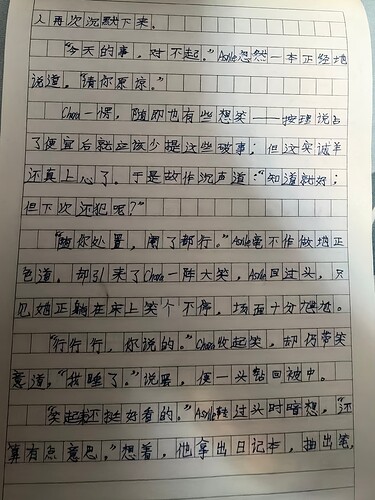 人再次沉默下来。
“今天的事，对不起。”Asriel忽然一本正经地
说道，“请你原谅。”
Chara一愣，随即也有些想笑——按理说占
了便宜后就应该少提这些破事；但这实诚羊
还真上心了。于是故作沉声道：“知道就好；
但下次还犯呢？”
“随你处置，阉了都行。”Asriel毫不作做地正
色道。却引来了Chara一阵大笑，Asriel回过头，只
见她正躺在床上笑个不停，场面十分尴尬。
“行行行，你说的。”Chara收起笑，却仍带笑
意道，“我睡了。”说罢，便一头钻回被中。
“笑起来还挺好看的。”Asriel转过头时暗想，“还
算有点意思。”想着，他拿出日记本，抽出笔，